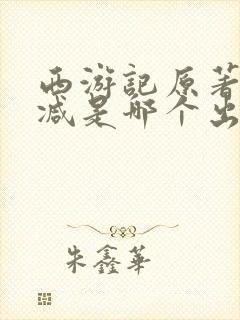 西游記原著
减是哪个出
朱鑫華